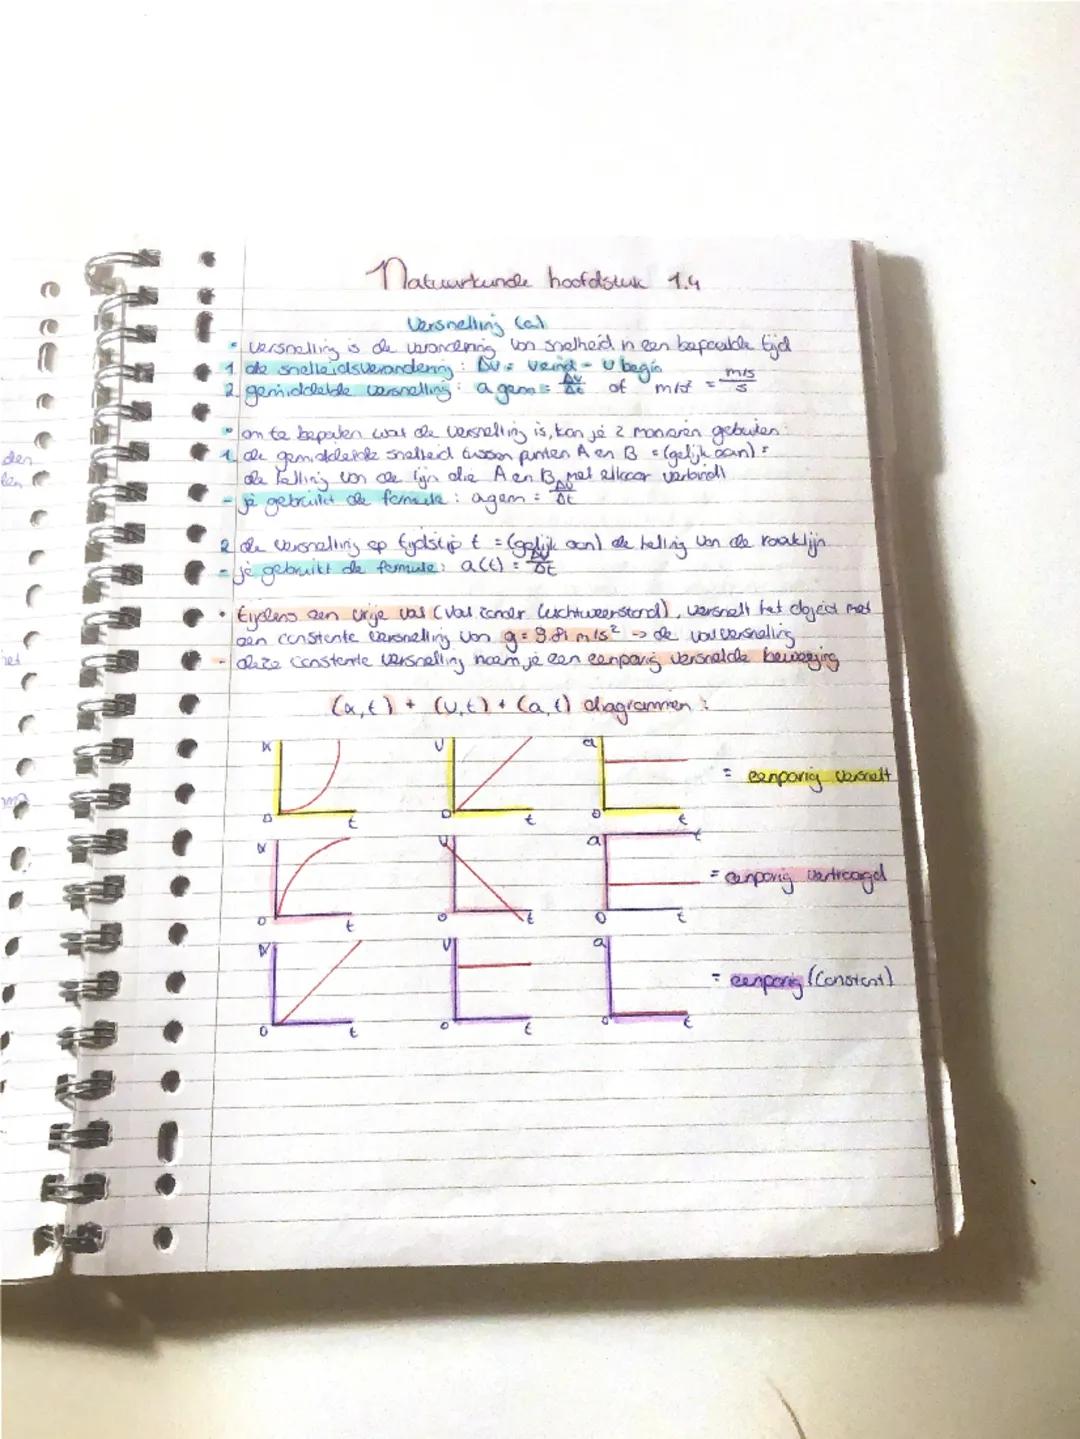 Natuurkunde hoofdstuk 1.4
Versnelling (a)
• versnelling is de verandering van snelheid in een bepaalde tijd
1. de snelheidsverandering: Δv = veind - v begin
2. gemiddelde versnelling: a gem = Δv/Δt of m/s² = m/s / s
• om te bepalen wat de versnelling is, kan je 2 manieren gebruiken:
1. de gemiddelde snelheid tussen punten A en B = (gelijk aan) =
de helling van de lijn die A en B met elkaar verbindt
- je gebruikt de formule: agem = Δv/Δt
2 de versnelling op tijdstip t = (gelijk aan) de helling van de raaklijn
- je gebruikt de formule: a(t) = Δv/Δt
• tijdens een vrije val (val zonder luchtweerstand), versnelt het object met
een constante versnelling van g = 9.81 m/s² -> de valversnelling
- deze constante versnelling noem je een eenparig versnelde beweging
(x,t) + (v,t) + (a,t) diagrammen:
x 0 t v 0 t a 0 t = eenparig versnelt
x 0 t v 0 t a t 0 t = eenparig vertraagd
x 0 t v 0 t a 0 t = eenparig (constant)
den